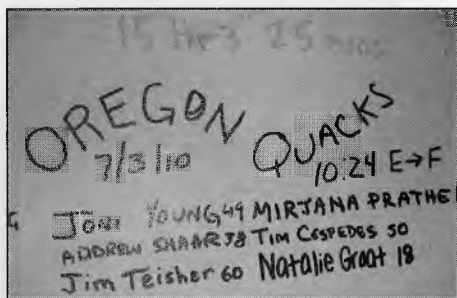 15 Hrs 25 mins
OREGON QUACKS
7/3/10 10:24 E→F
JONI YOUNG 49 MIRJANA PRATHE
ANDREW SHAAR 38 TIM CESPEDES 50
Jim Teisher 60 Natalie Graat 18